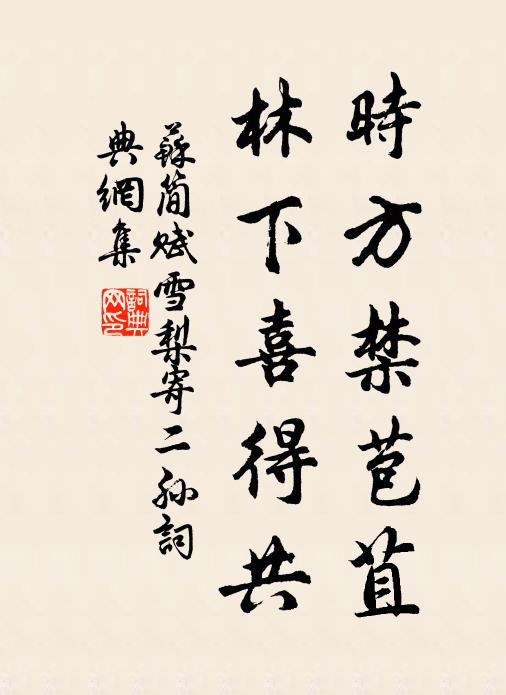 時方禁苞苴
林下喜得共
蘇簡賦雪梨寄二孙詞
典網集
詞典
网印